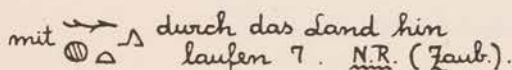 mit 𓐍𓏏𓂻 durch das Land hin
laufen 7. N.R. (Zaub.).